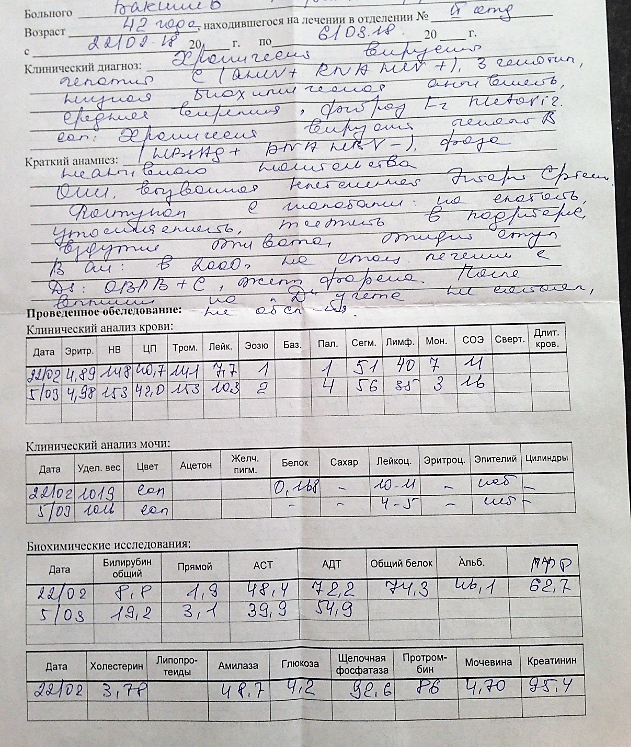 Больного Бакшиев
Возраст 42 года, находившегося на лечении в отделении № стац
с 22/02-18 20 г. по 6/03.18. 20 г.
Клинический диагноз: Хронический вирусный
гепатит С (aHCV+ RNA HCV+), 3 генотип,
низкая биохимическая активность,
средняя виремия, фиброз
соп: Хронический вирусный гепатит В
(HBsAg+ DNA HBV-), фаза
Краткий анамнез: неактивного носительства
Поступил с жалобами: на слабость,
утомляемость, тяжесть в подреберье,
вздутие живота, жидкий стул
В ан: в 2000г на стац. лечении с
Ds: ОВГВ+С, желт. форма. После
выписки на "Д" учете не состоял,
не обсл-ся.
Проведенное обследование:
Клинический анализ крови:
Дата Эритр. НВ ЦП Тром. Лейк. Эозю Баз. Пал. Сегм. Лимф. Мон. СОЭ Сверт. Длит. кров.
22/02 4,89 148 40,7 141 7,7 1 1 51 40 7 11
5/03 4,98 153 42,0 153 10,3 2 4 56 35 3 16
Клинический анализ мочи:
Дата Удел. вес Цвет Ацетон Желч. пигм. Белок Сахар Лейкоц. Эритроц. Эпителий Цилиндры
22/02 1019 сол 0,168 - 10-11 - неб -
5/03 1016 сол - - 4-5 - неб -
Биохимические исследования:
Дата Билирубин общий Прямой АСТ АДТ Общий белок Альб.
22/02 8,8 1,9 48,4 72,2 74,3 46,1 62,7
5/03 19,2 3,1 39,9 54,9
Дата Холестерин Липопро-теиды Амилаза Глюкоза Щелочная фосфатаза Протром-бин Мочевина Креатинин
22/02 3,78 48,7 4,2 92,6 86 4,70 95,4